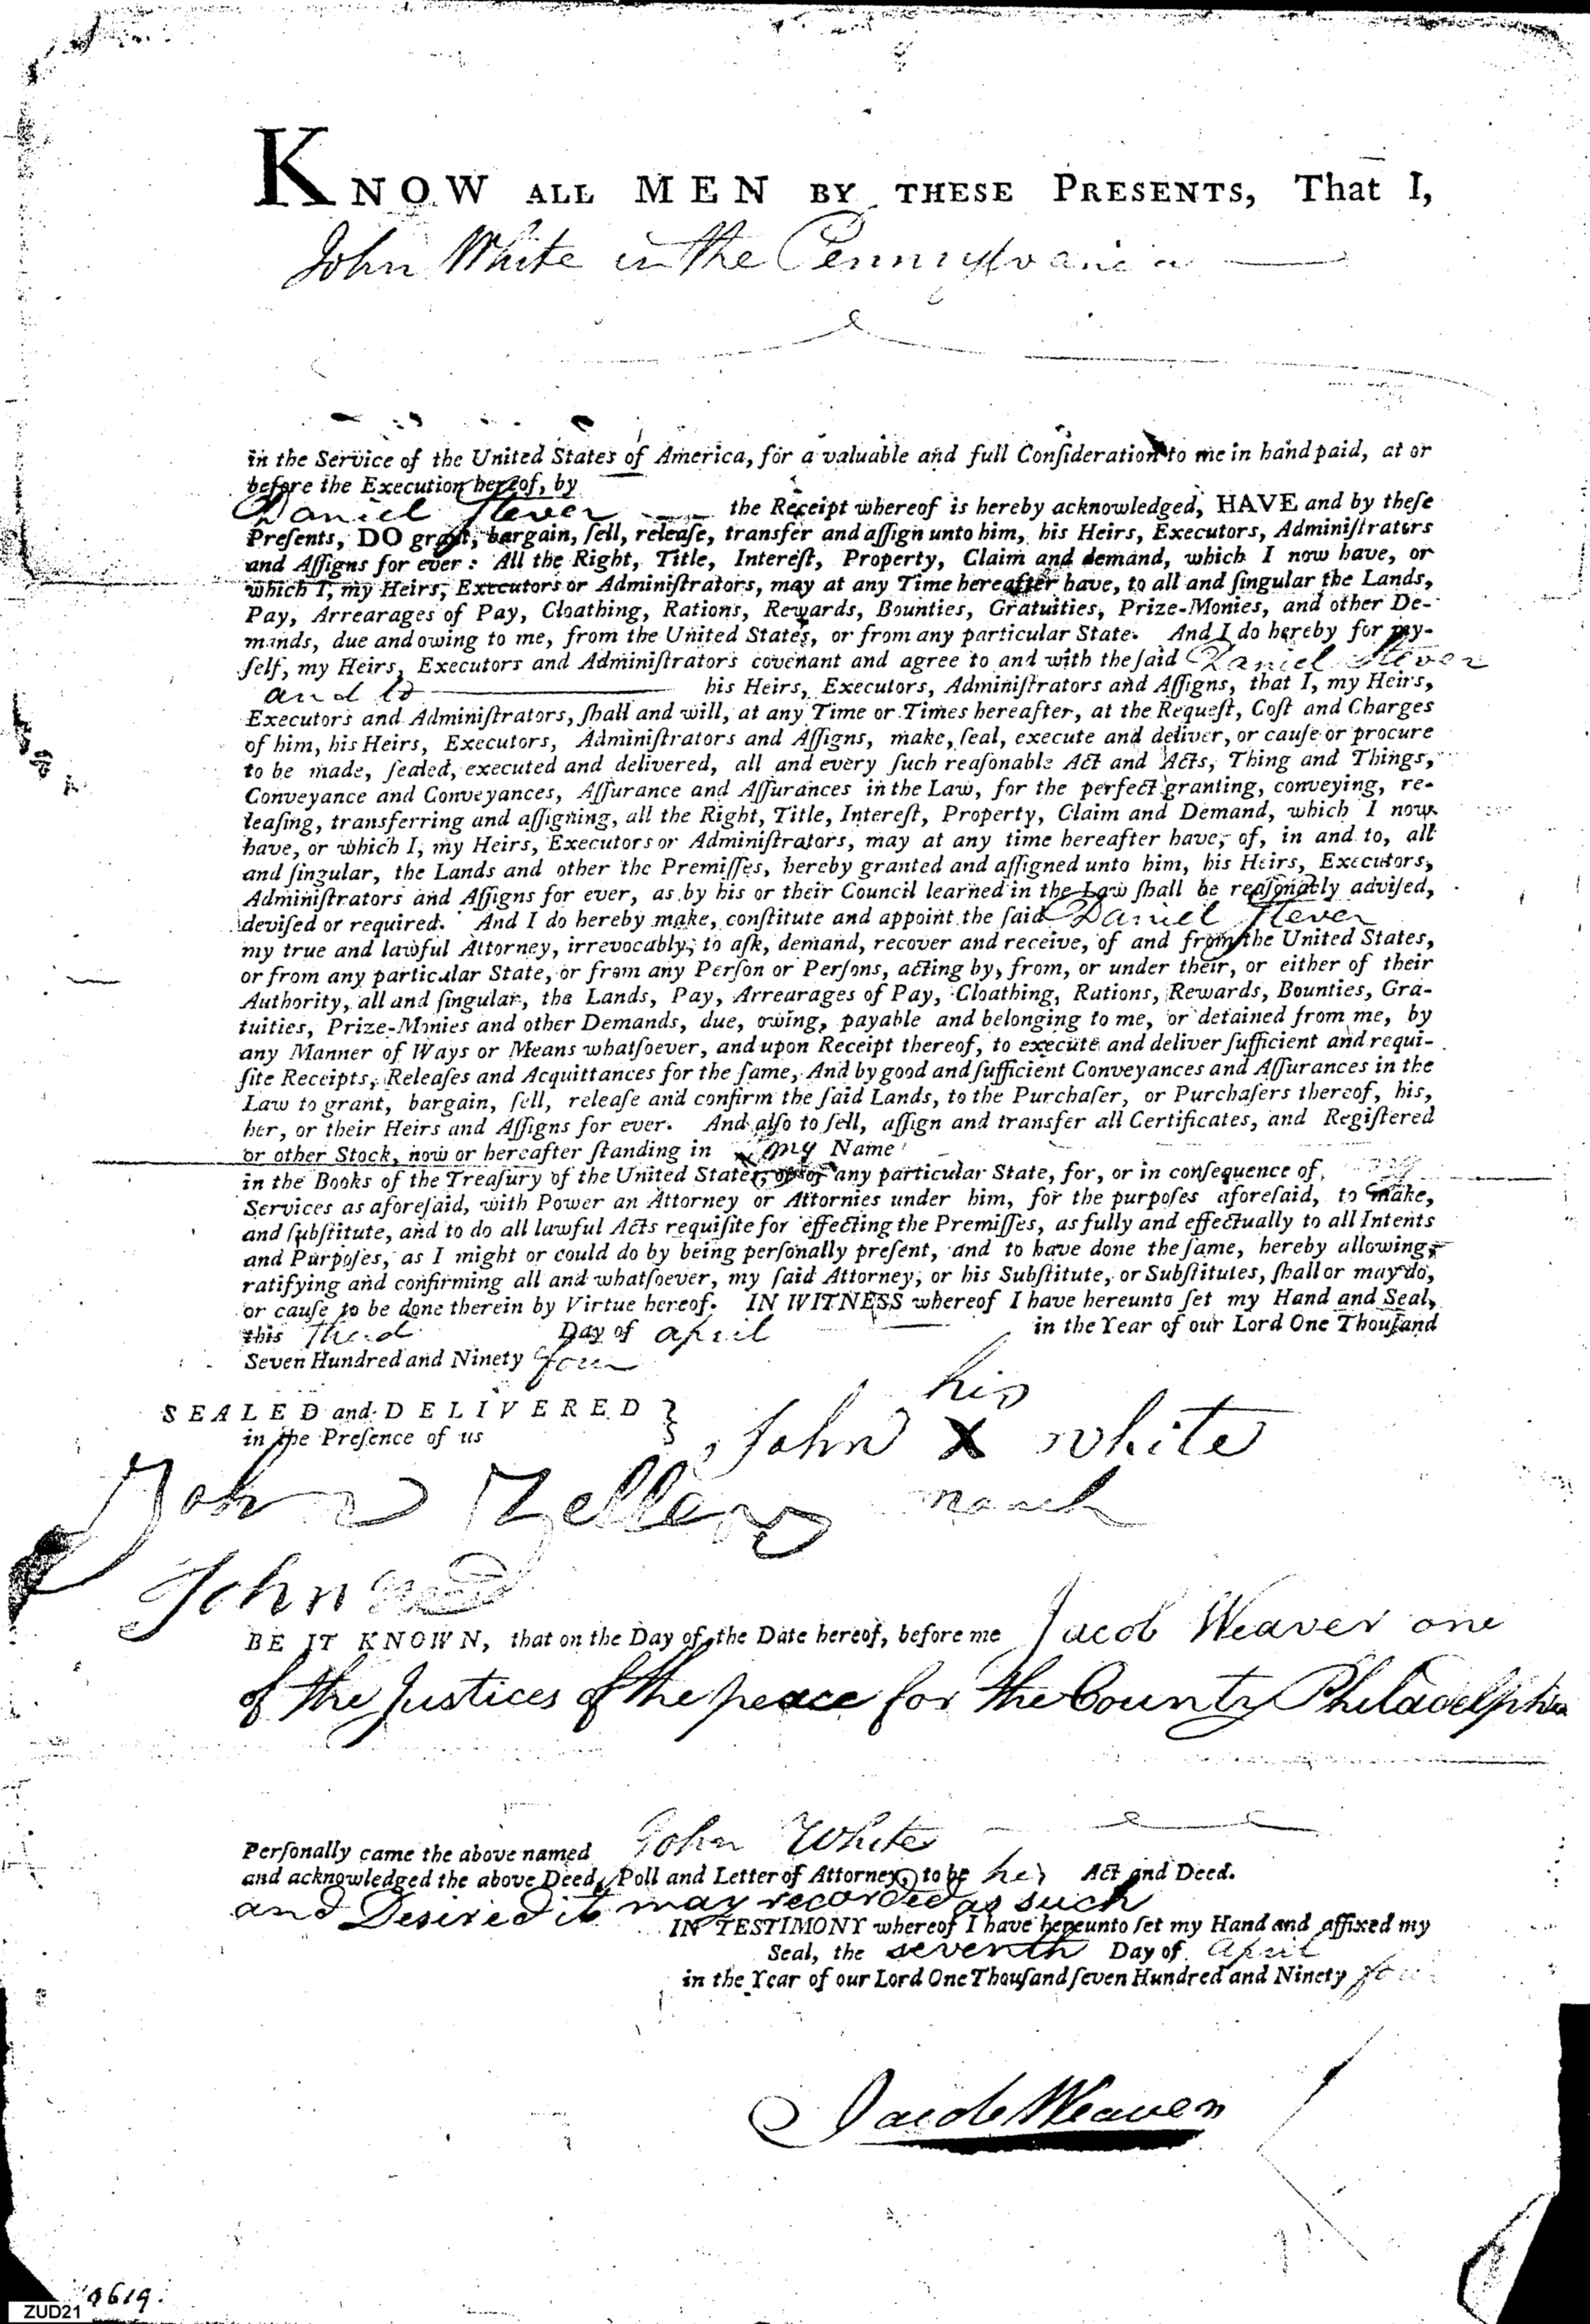 KNOW ALL MEN BY THESE PRESENTS, That I,
John White in the Pennsylvania
in the Service of the United States of America, for a valuable and full Conſideration to me in hand paid, at or
before the Execution hereof, by
Daniel Stever the Receipt whereof is hereby acknowledged, HAVE and by theſe
Preſents, DO grant, bargain, ſell, releaſe, transfer and aſſign unto him, his Heirs, Executors, Adminiſtrators
and Aſſigns for ever: All the Right, Title, Intereſt, Property, Claim and demand, which I now have, or
which I, my Heirs, Executors or Adminiſtrators, may at any Time hereafter have, to all and ſingular the Lands,
Pay, Arrearages of Pay, Cloathing, Rations, Rewards, Bounties, Gratuities, Prize-Monies, and other De-
mands, due and owing to me, from the United States, or from any particular State. And I do hereby for my-
ſelf, my Heirs, Executors and Adminiſtrators covenant and agree to and with the ſaid Daniel Stever
and to his Heirs, Executors, Adminiſtrators and Aſſigns, that I, my Heirs,
Executors and Adminiſtrators, ſhall and will, at any Time or Times hereafter, at the Requeſt, Coſt and Charges
of him, his Heirs, Executors, Adminiſtrators and Aſſigns, make, ſeal, execute and deliver, or cauſe or procure
to be made, ſealed, executed and delivered, all and every ſuch reaſonable Act and Acts, Thing and Things,
Conveyance and Conveyances, Aſſurance and Aſſurances in the Law, for the perfect granting, conveying, re-
leaſing, transferring and aſſigning, all the Right, Title, Intereſt, Property, Claim and Demand, which I now
have, or which I, my Heirs, Executors or Adminiſtrators, may at any time hereafter have, of, in and to, all
and ſingular, the Lands and other the Premiſſes, hereby granted and aſſigned unto him, his Heirs, Executors,
Adminiſtrators and Aſſigns for ever, as by his or their Council learned in the Law ſhall be reaſonably adviſed,
deviſed or required. And I do hereby make, conſtitute and appoint the ſaid Daniel Stever
my true and lawful Attorney, irrevocably, to aſk, demand, recover and receive, of and from the United States,
or from any particular State, or from any Perſon or Perſons, acting by, from, or under their, or either of their
Authority, all and ſingular, the Lands, Pay, Arrearages of Pay, Cloathing, Rations, Rewards, Bounties, Gra-
tuities, Prize-Monies and other Demands, due, owing, payable and belonging to me, or detained from me, by
any Manner of Ways or Means whatſoever, and upon Receipt thereof, to execute and deliver ſufficient and requi-
ſite Receipts, Releaſes and Acquittances for the ſame, And by good and ſufficient Conveyances and Aſſurances in the
Law to grant, bargain, ſell, releaſe and confirm the ſaid Lands, to the Purchaſer, or Purchaſers thereof, his,
her, or their Heirs and Aſſigns for ever. And alſo to ſell, aſſign and transfer all Certificates, and Regiſtered
or other Stock, now or hereafter ſtanding in my Name
in the Books of the Treaſury of the United States, or of any particular State, for, or in conſequence of, my
Services as aforeſaid, with Power an Attorney or Attornies under him, for the purpoſes aforeſaid, to make,
and ſubſtitute, and to do all lawful Acts requiſite for effecting the Premiſſes, as fully and effectually to all Intents
and Purpoſes, as I might or could do by being perſonally preſent, and to have done the ſame, hereby allowing,
ratifying and confirming all and whatſoever, my ſaid Attorney, or his Subſtitute, or Subſtitutes, ſhall or may do,
or cauſe to be done therein by Virtue hereof. IN WITNESS whereof I have hereunto ſet my Hand and Seal,
this Third Day of april in the Year of our Lord One Thouſand
Seven Hundred and Ninety four
his
SEALED and DELIVERED } John X white
in the Preſence of us
John Zellers march
John
BE IT KNOWN, that on the Day of the Date hereof, before me Jacob Weaver one
of the Justices of the peace for the County Philadelphia
Perſonally came the above named John White
and acknowledged the above Deed, Poll and Letter of Attorney, to be his Act and Deed.
and Desired it may recorded as such
IN TESTIMONY whereof I have hereunto ſet my Hand and affixed my
Seal, the seventh Day of April
in the Year of our Lord One Thouſand ſeven Hundred and Ninety four
Jacob Weaver
0619.
ZUD21